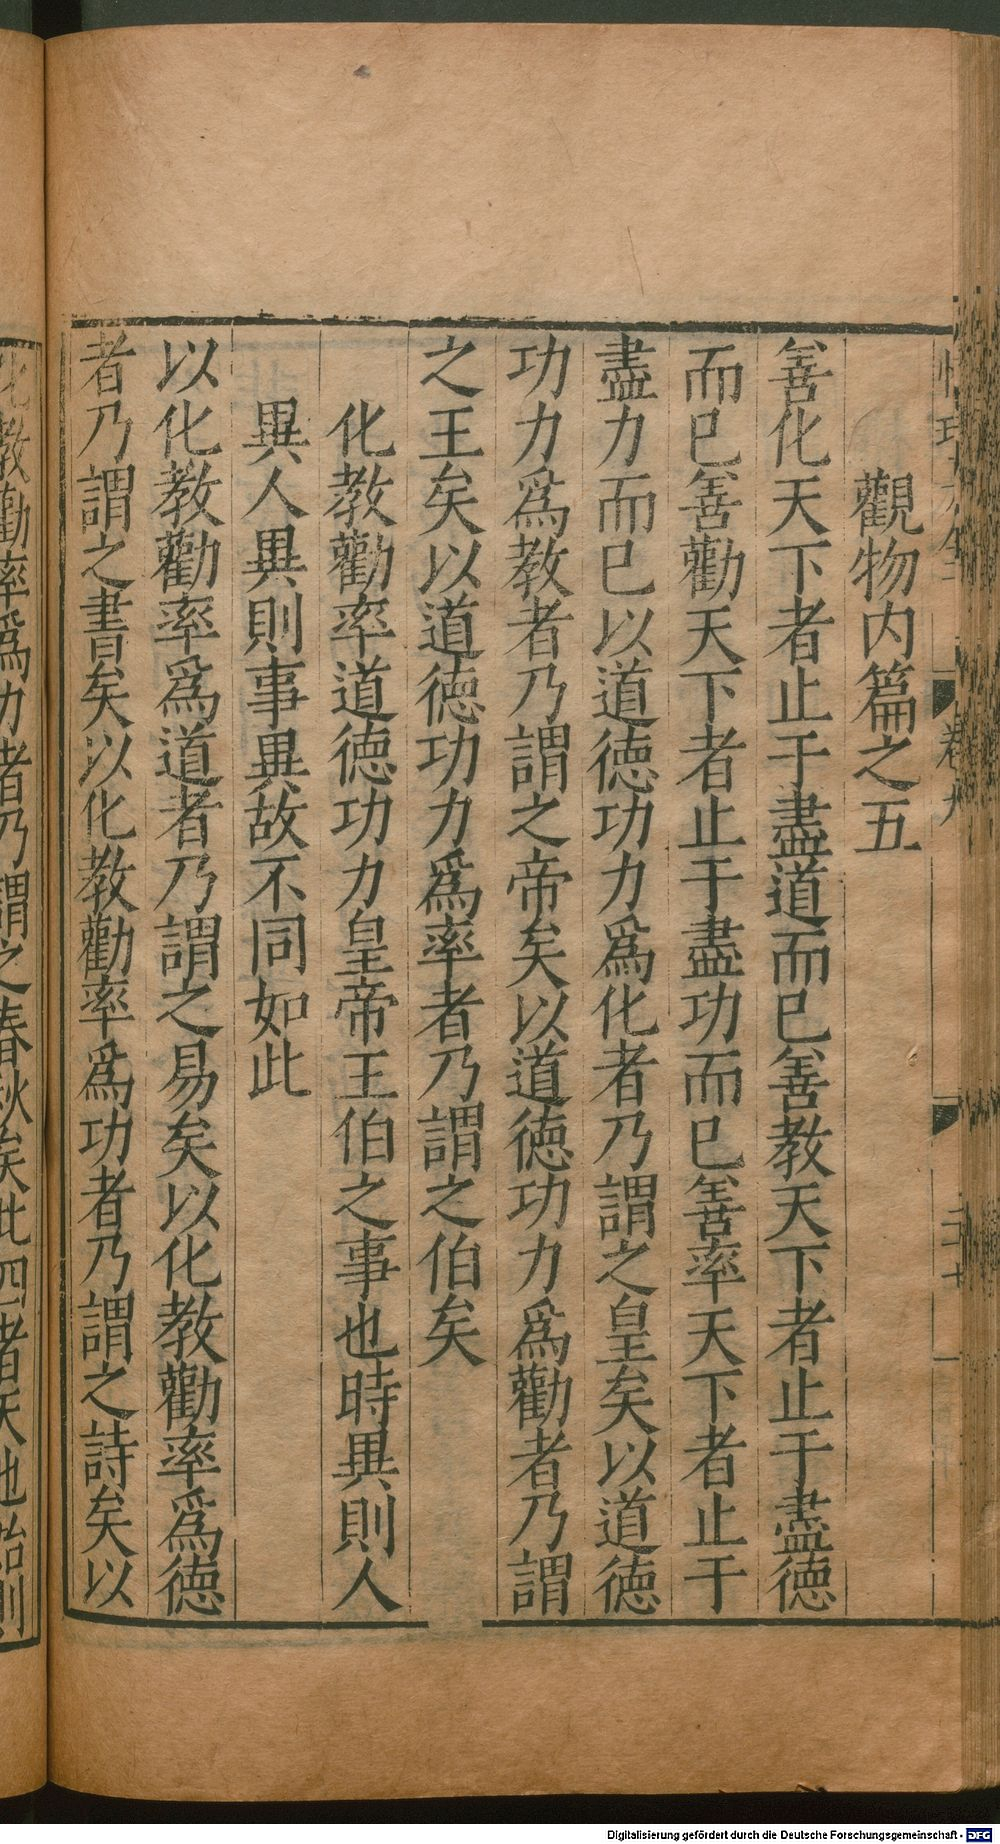 觀物内篇之五
善化天下者止于盡道而已善教天下者止于盡德
而已善勸天下者止于盡功而已善率天下者止于
盡力而已以道德功力爲化者乃謂之皇矣以道德
功力爲教者乃謂之帝矣以道德功力爲勸者乃謂
之王矣以道德功力爲率者乃謂之伯矣
化教勸率道德功力皇帝王伯之事也時異則人
異人異則事異故不同如此
以化教勸率爲道者乃謂之易矣以化教勸率爲德
者乃謂之書矣以化教勸率爲功者乃謂之詩矣以
化教勸率爲力者乃謂之春秋矣此四者天地始則
卷九
Digitalisierung gefördert durch die Deutsche Forschungsgemeinschaft - DFG